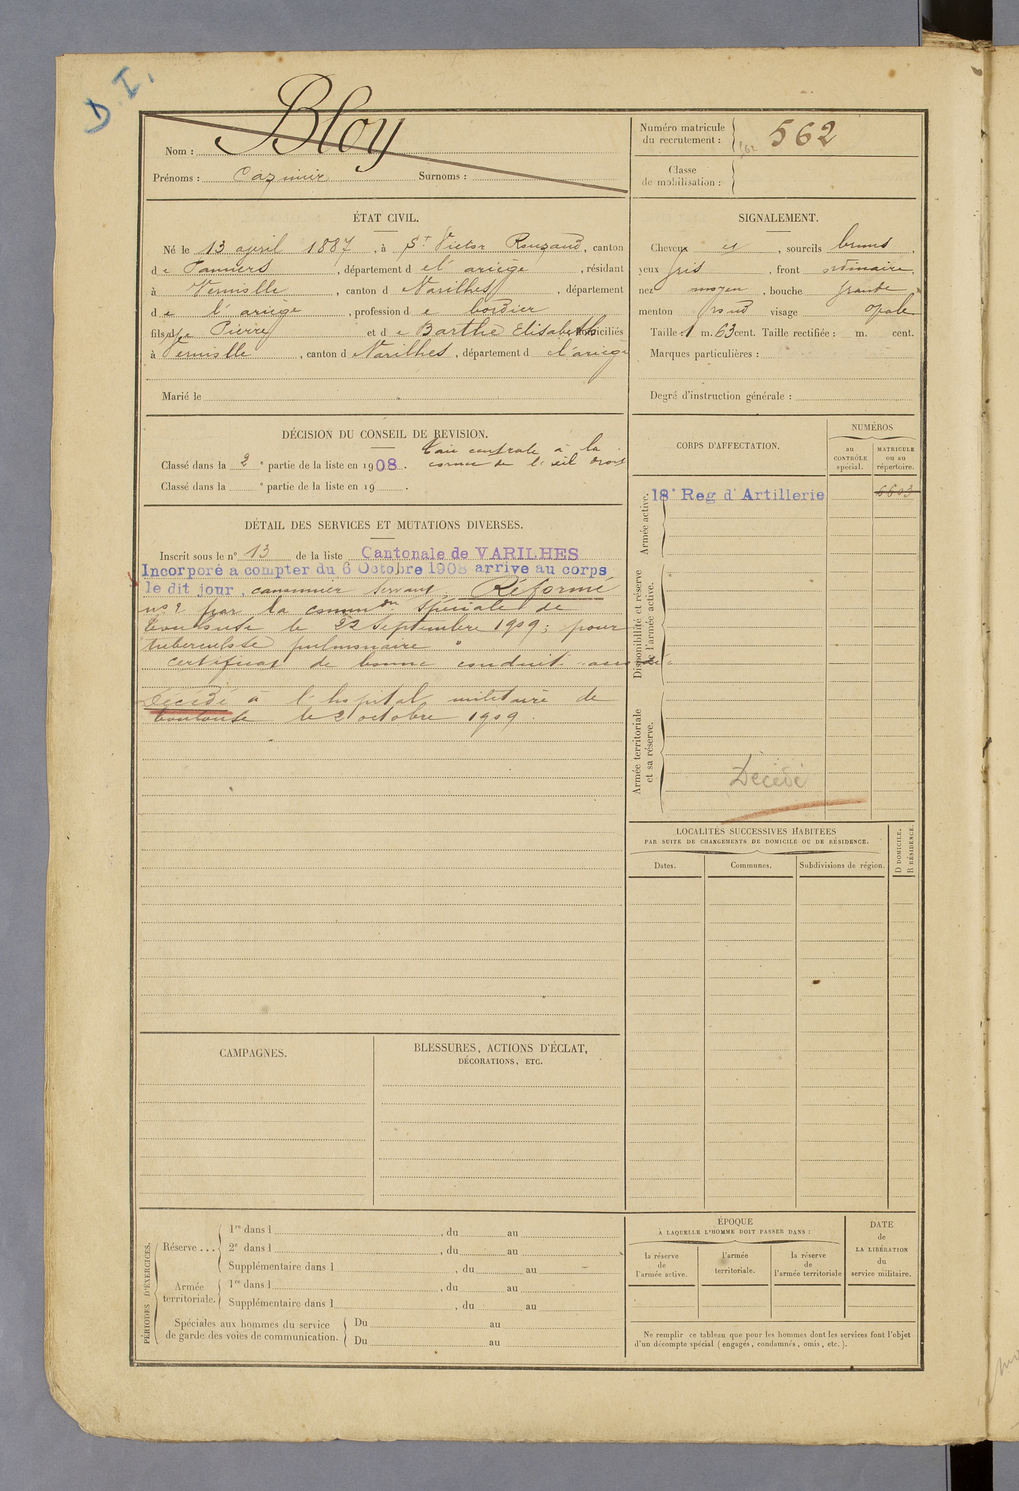 D. I.
Nom : Bloy
Prénoms : Cazimir Surnoms :
Numéro matricule du recrutement : 562
Classe de mobilisation :
ÉTAT CIVIL.
Né le 13 april 1887, à St Victor Rouzaud, canton
de Pamiers, département de l'ariège, résidant
à Verniolle, canton d Varilhes, département
de l'ariège, profession de bordier
fils de Pierre et de Barthe Elisabeth domiciliés
à Verniolle, canton d Varilhes, département d l'ariège
Marié le
SIGNALEMENT.
Cheveux et, sourcils bruns,
yeux gris, front ordinaire,
nez moyen, bouche grande,
menton rond visage opale
Taille 1 m. 63 cent. Taille rectifiée : m. cent.
Marques particulières :
Degré d'instruction générale :
DÉCISION DU CONSEIL DE REVISION.
Classé dans la 2e partie de la liste en 1908. Taie centrale à la
cornée de l'œil droit
Classé dans la e partie de la liste en 19 .
CORPS D'AFFECTATION.
NUMÉROS
au CONTRÔLE spécial.
MATRICULE ou au répertoire.
Armée active.
18e Reg d'Artillerie 6603
Disponibilité et réserve de l'armée active.
Armée territoriale et sa réserve.
Décédé
DÉTAIL DES SERVICES ET MUTATIONS DIVERSES.
Inscrit sous le n° 13 de la liste Cantonale de VARILHES
Incorporé a compter du 6 Octobre 1908 arrive au corps
le dit jour, canonnier servant, Réformé
n° 2 par la common spéciale de
Toulouse le 22 Septembre 1909; pour
tuberculose pulmonaire "
certificat de bonne conduite
Décédé à l'hopital militaire de
Toulouse le 2 octobre 1909.
LOCALITÉS SUCCESSIVES HABITÉES
PAR SUITE DE CHANGEMENTS DE DOMICILE OU DE RÉSIDENCE.
Dates. Communes. Subdivisions de région.
D DOMICILE.
R RÉSIDENCE.
CAMPAGNES.
BLESSURES, ACTIONS D'ÉCLAT,
DÉCORATIONS, ETC.
PÉRIODES D'EXERCICES.
Réserve ...
1re dans l , du au
2e dans l , du au
Supplémentaire dans l , du au
Armée territoriale.
1re dans l , du au
Supplémentaire dans l , du au
Spéciales aux hommes du service
de garde des voies de communication.
Du au
Du au
ÉPOQUE
À LAQUELLE L'HOMME DOIT PASSER DANS :
la réserve de l'armée active.
l'armée territoriale.
la réserve de l'armée territoriale
DATE de LA LIBÉRATION du service militaire.
Ne remplir ce tableau que pour les hommes dont les services font l'objet
d'un décompte spécial (engagés, condamnés, omis, etc.).